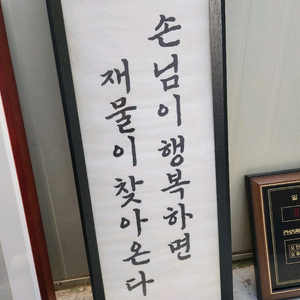 손님이행복하면
재물이찾아온다